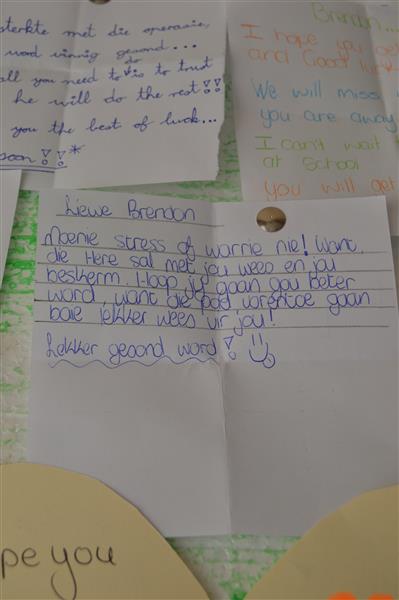 sterkte met die operasie,
word vinnig gesond...
all you need to do is to trust
he will do the rest!!
you the best of luck...
soon!!*
Brendon...
I hope you get
and Good luck
We will miss
you are away
I can't wait
at School
you will get
Liewe Brendon
Moenie stress of worrie nie! Want
die Here sal met jou wees en jou
beskerm. Hoop jy gaan gou beter
word, want die pad vorentoe gaan
baie lekker wees vir jou!
Lekker gesond word!
pe you